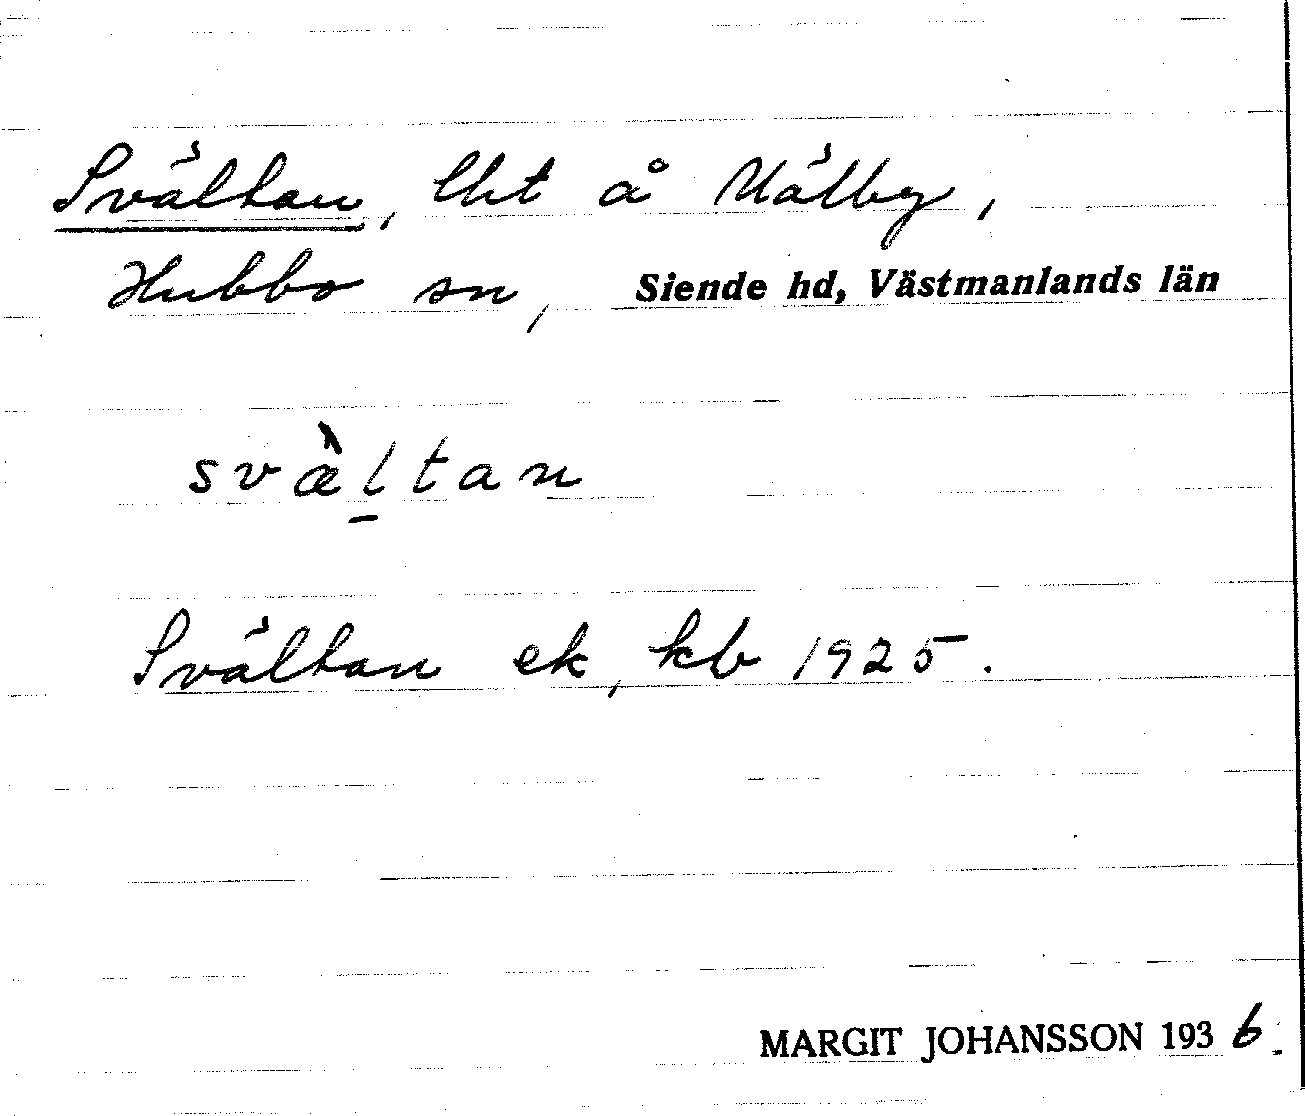 Svältan, lht å Välby,
Hubbo sn, Siende hd, Västmanlands län
svæ̀l̠tan
Svältan ek, kb 1925.
MARGIT JOHANSSON 1936.